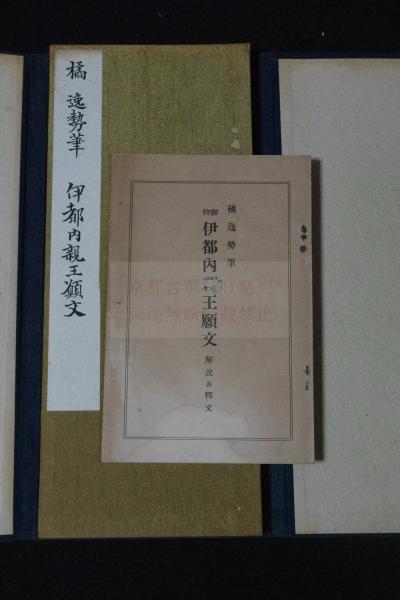 橘逸勢筆 伊都内親王願文
橘逸勢筆
御物 伊都内親王願文 解説及釋文
京都舎 発売
画像無断転載禁止